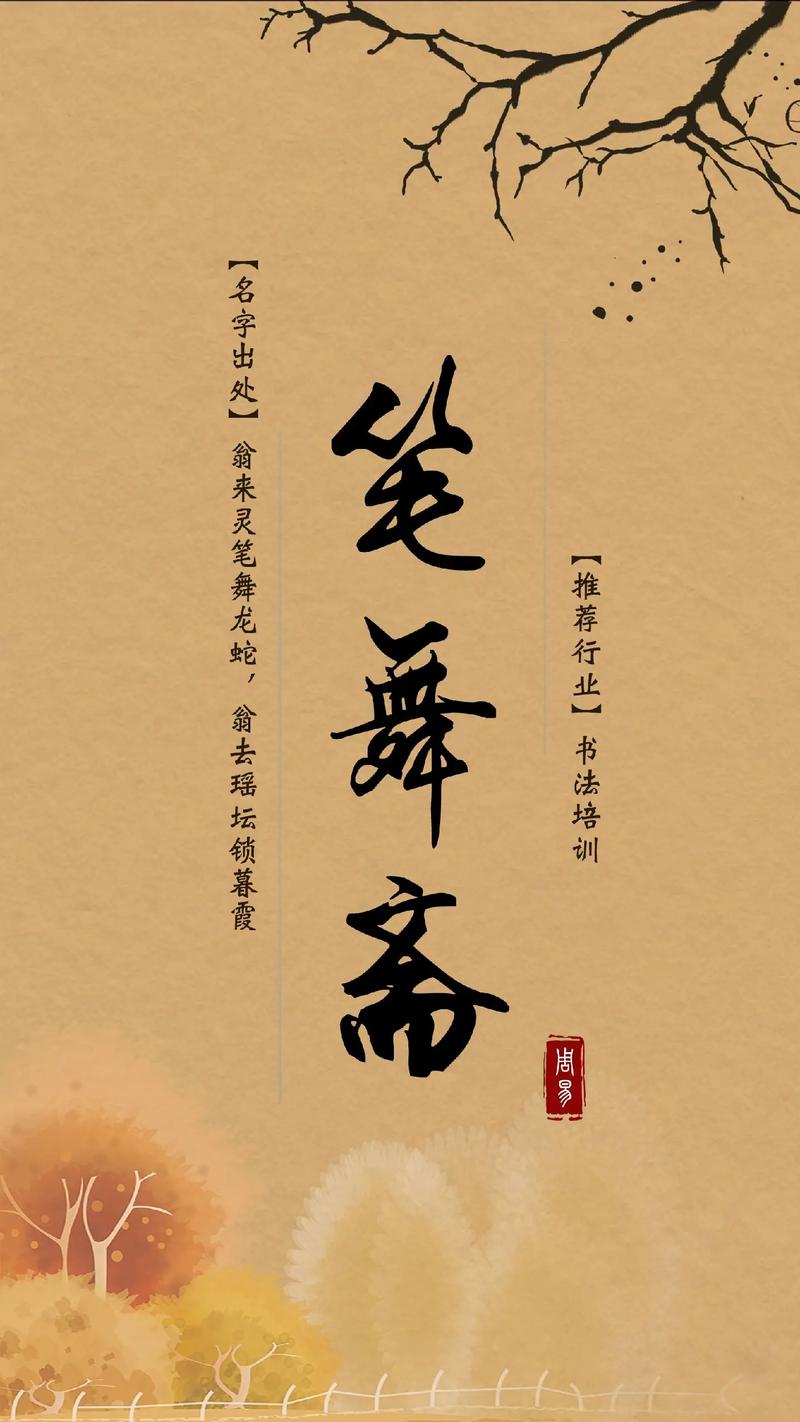 【推荐行业】书法培训
笔舞斋
周易
【名字出处】翁来灵笔舞龙蛇，翁去瑶坛锁暮霞